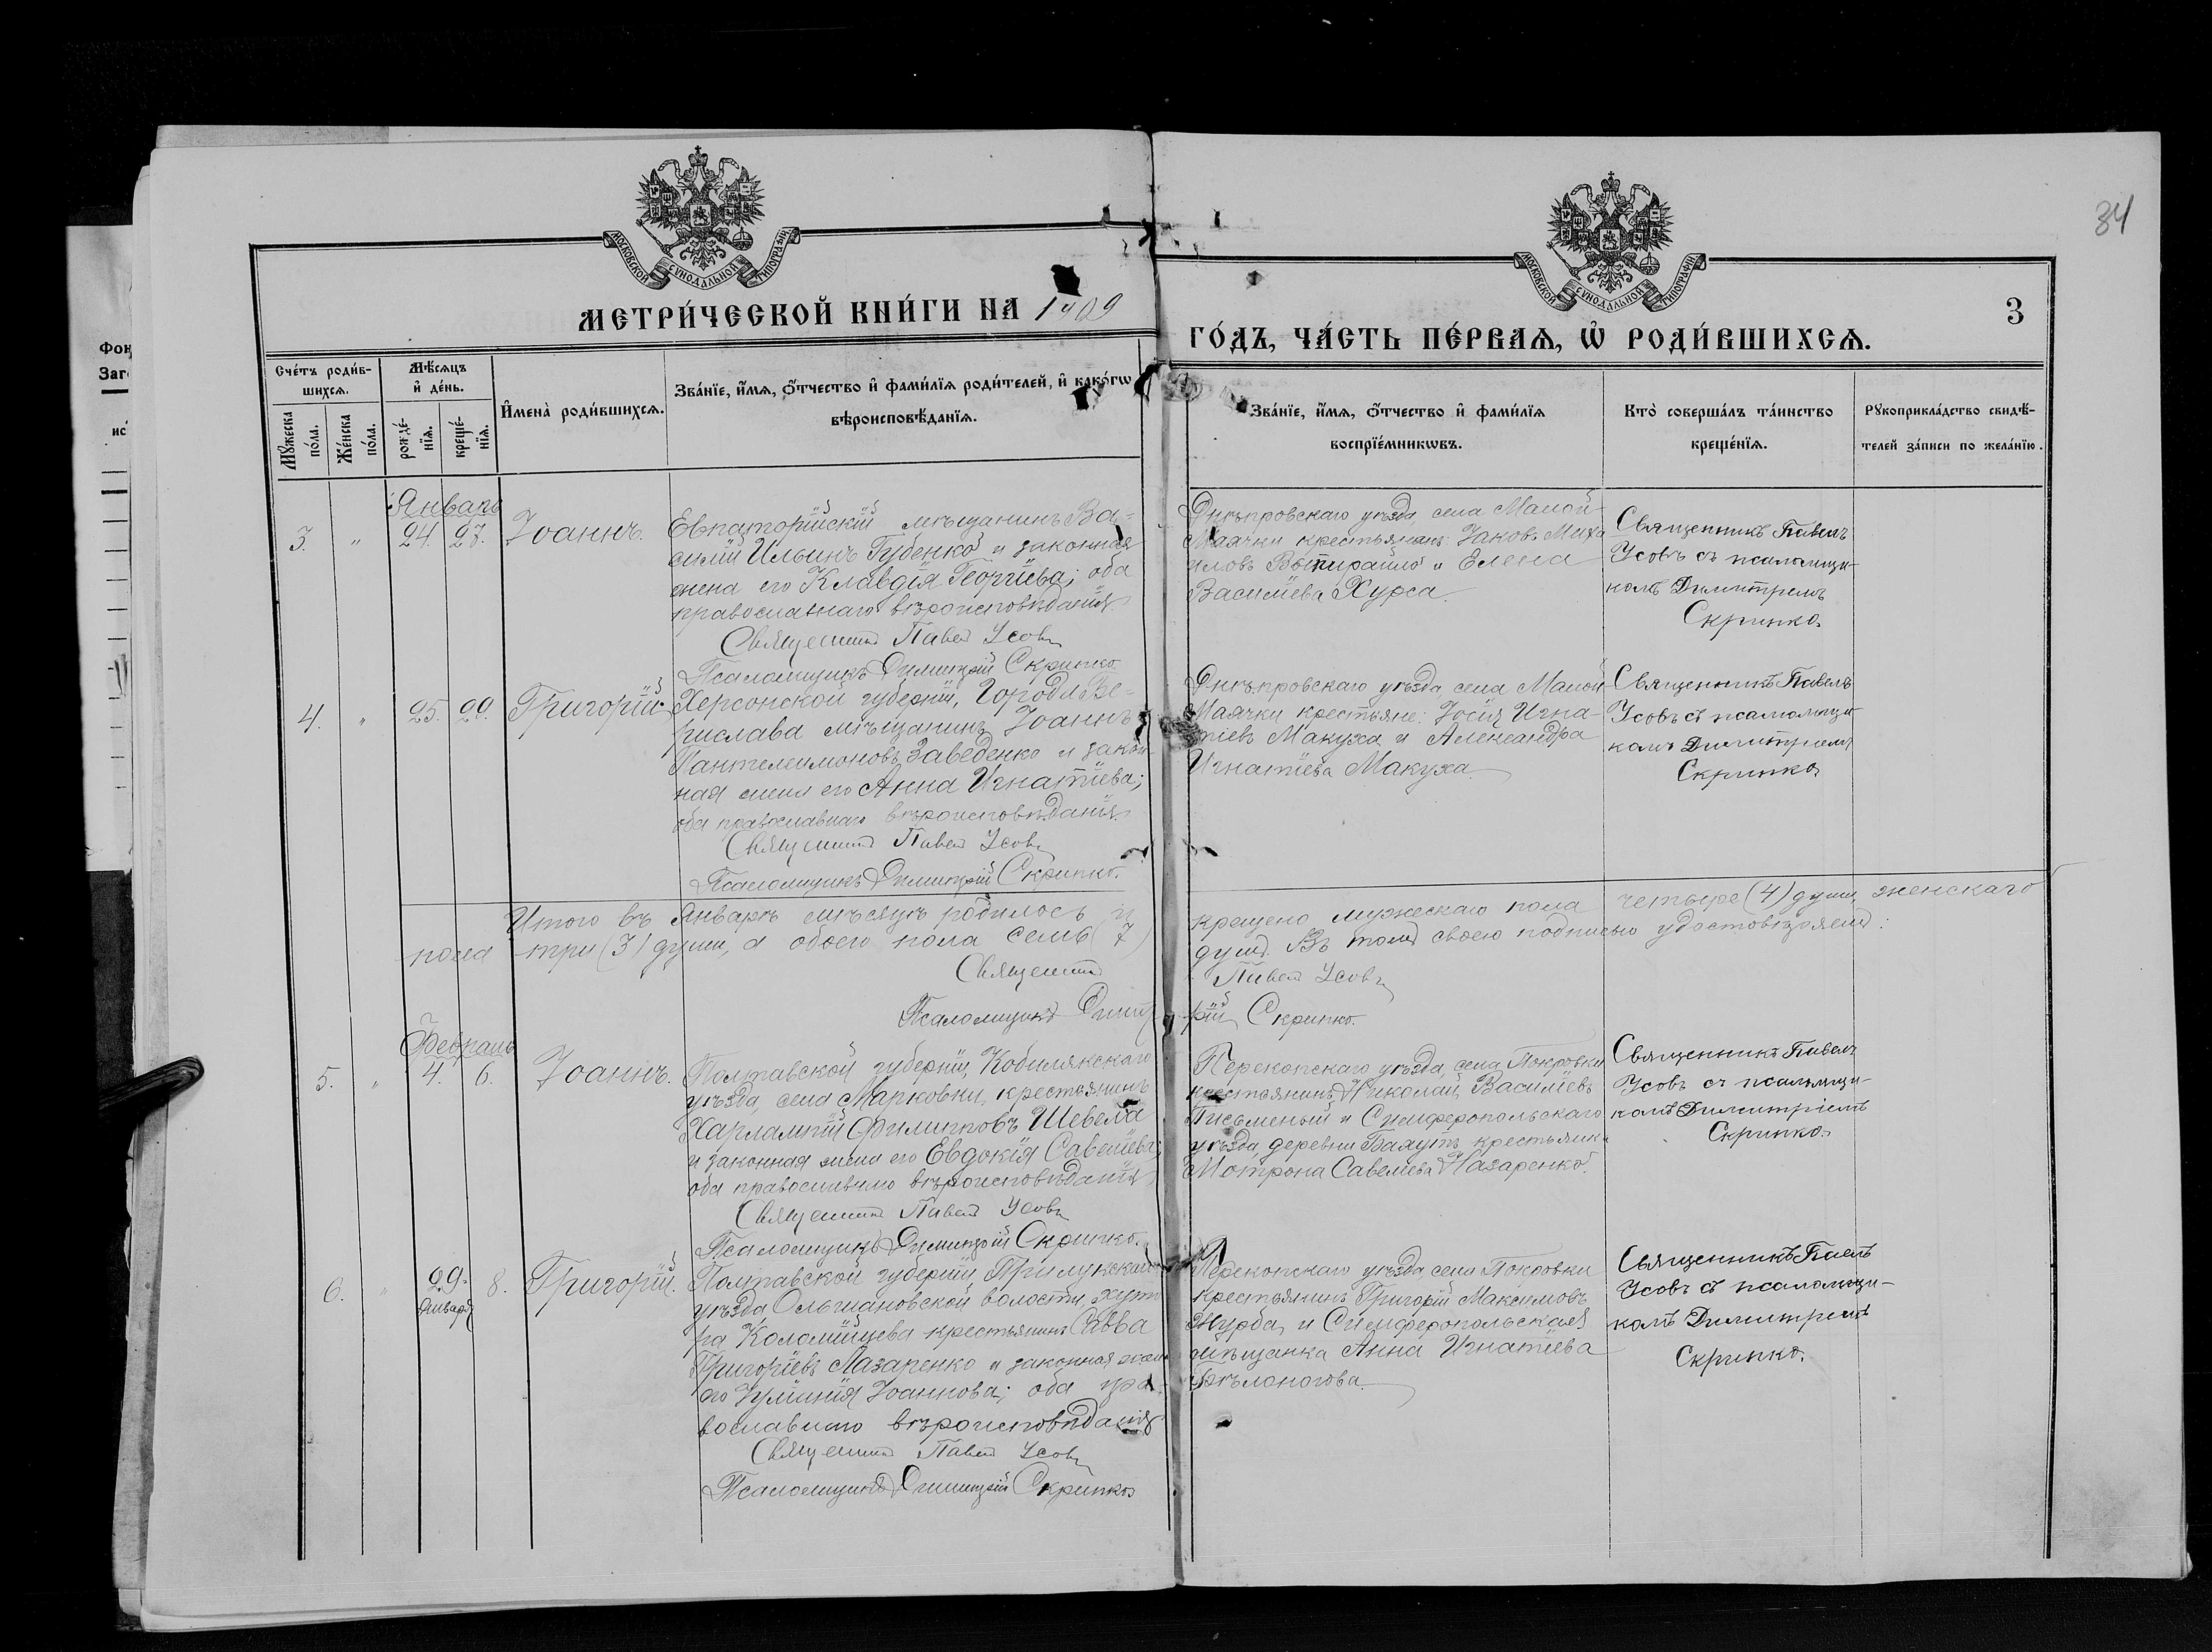 34
МОСКОВСКОЙ СѴНОДАЛЬНОЙ ТИПОГРАФІИ
МОСКОВСКОЙ СѴНОДАЛЬНОЙ ТИПОГРАФІИ
МЕТРИ́ЧЕСКОЙ КНИ́ГИ НА 1909
ГО́ДЪ, ЧА́СТЬ ПЕ́РВАѦ, Ѽ РОДИ́ВШИХСѦ.
3
Счéтъ роди́в-
шихсѧ.
Мꙋ́жеска
по́ла.
Же́нска
по́ла.
Мѣ́сѧцъ
и҆ де́нь.
рожде́-
нїѧ.
креще́-
нїѧ.
И҆мена̀ роди́вшихсѧ.
Зва́нїе, и҆́мѧ, ѻ҆́тчество и҆ фами́лїѧ роди́телей, и҆ како́гѡ
вѣроисповѣ́данїѧ.
Зва́нїе, и҆́мѧ, ѻ҆́тчество и҆ фами́лїѧ
воспрїе́мникѡвъ.
Кто̀ соверша́лъ та́инство
креще́нїѧ.
Рꙋкоприкла́дство свидѣ́-
телей за́писи по жела́нїю.
Январь
3. " 24. 27. Іоаннъ.
Евпаторійскій мѣщанинъ Ва-
силій Ильинъ Губенко и законная
жена его Клавдія Георгіева; оба
православнаго вѣроисповѣданія
Священникъ Павелъ Усовъ
Псаломщикъ Димитрій Скрипко.
Днѣпровскаго уѣзда, села Малой
Маячки крестьянинъ Іаковъ Миха
иловъ Вытирайло и Елена
Василіева Хурса.
Священникъ Павелъ
Усовъ съ псаломщи-
комъ Димитріемъ
Скрипко.
4. " 25. 29. Григорій.
Херсонской губерніи, города Бе-
рислава мѣщанинъ Іоаннъ
Пантелеимоновъ Заведенко и закон
ная жена его Анна Игнатіева;
оба православнаго вѣроисповѣданія
Священникъ Павелъ Усовъ
Псаломщикъ Димитрій Скрипко.
Днѣпровскаго уѣзда села Малой
Маячки крестьяне: Іосія Игна-
тіевъ Макуха и Александра
Игнатіева Макуха.
Священникъ Павелъ
Усовъ съ псаломщи-
комъ Димитріемъ
Скрипко
Итого въ Январѣ мѣсяцѣ родилось и крещено мужескаго пола четыре (4) души, женскаго
пола три (3) души, а обоего пола семь (7) душъ. Въ томъ своею подписью удостовѣряемъ:
Священникъ Павелъ Усовъ
Псаломщикъ Димитрій Скрипко.
Февраль
5. " 4. 6. Іоаннъ.
Полтавской губерніи, Кобелякскаго
уѣзда, села Марковки, крестьянинъ
Харлампій Филипповъ Шевела
и законная жена его Евдокія Савеліева;
оба православнаго вѣроисповѣданія
Священникъ Павелъ Усовъ
Псаломщикъ Димитрій Скрипко.
Перекопскаго уѣзда, села Покровки
крестьянинъ Николай Василіевъ
Письменый и Симферопольскаго
уѣзда, деревни Баяутъ крестьянка
Мотрона Савелиева Назаренко.
Священникъ Павелъ
Усовъ съ псаломщи-
комъ Димитріемъ
Скрипко.
6. " 29. января 8. Григорій.
Полтавской губерніи, Прилукскаго
уѣзда Ольшановской волости, хуто
ра Коломійцева крестьянинъ Савва
Григоріевъ Лазаренко и законная жена
его Іуліанія Іоаннова; оба пра-
вославнаго вѣроисповѣданія
Священникъ Павелъ Усовъ
Псаломщикъ Димитрій Скрипко
Перекопскаго уѣзда, села Покровки
крестьянинъ Григорій Максимовъ
Журба, и Симферопольская
мѣщанка Анна Игнатіева
Бѣлоногова.
Священникъ Павелъ
Усовъ съ псаломщи-
комъ Димитріемъ
Скрипко.